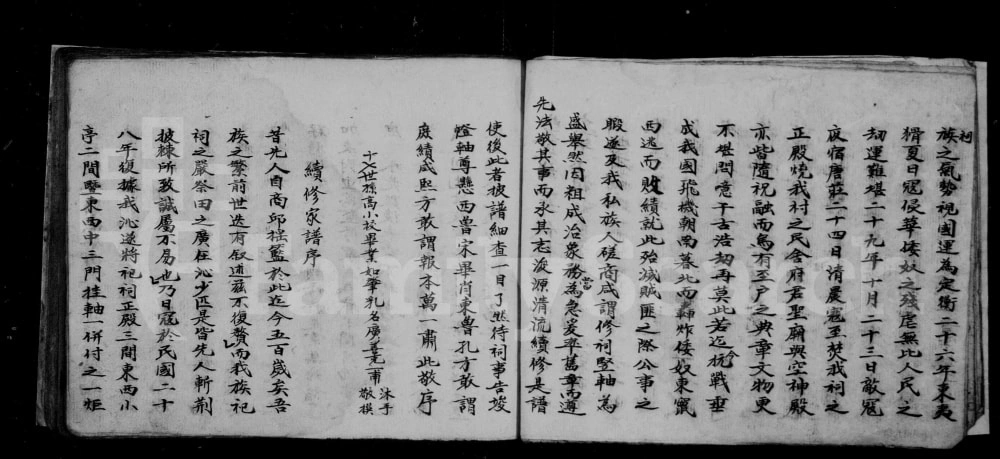 族之氣勢視國運為定衡二十六年東夷
祠
猾夏日寇侵華倭奴之殘虐無比人民之
劫運難堪二十九年十月二十三日敵寇
夜宿唐莊二十四日清晨寇至焚我祠之
正殿燒我村之民舍府君聖廟與空神殿
亦皆隨祝融而烏有至戶之典章文物更
不堪問意千古浩劫再莫此若迄抗戰垂
今
成我國飛機朝南暮北而轟炸倭奴東竄
西逃而敗績就此殄滅賊匪之際公事之
暇遂及我私族人磋商咸謂修祠豎軸為
盛舉然因祖成治象務為急爰率舊章而遵
當
先法敬其事而承其志浚源清流續修是譜
使後此者披譜細查一目了然待祠事告竣
燈軸尊懸西曾宋畢肖東魯孔方敢謂
庶績咸熙方敢謂報本萬一肅此敬序
十七世孫高小校畢業如肇乳名廣 沐手敬撰
續修家譜序
昔先人自商邱摇籃於此迄今五百歲矣吾
族之繁前世迭有叙述茲不復贅而我族祀
祠之嚴祭田之廣在沁少匹是皆先人斬荆
披棘所致誠屬不易也乃日寇於民國二十
八年復據我沁遂將祀祠正殿三間東西小
亭二間暨東西中三門挂軸一併付之一炬